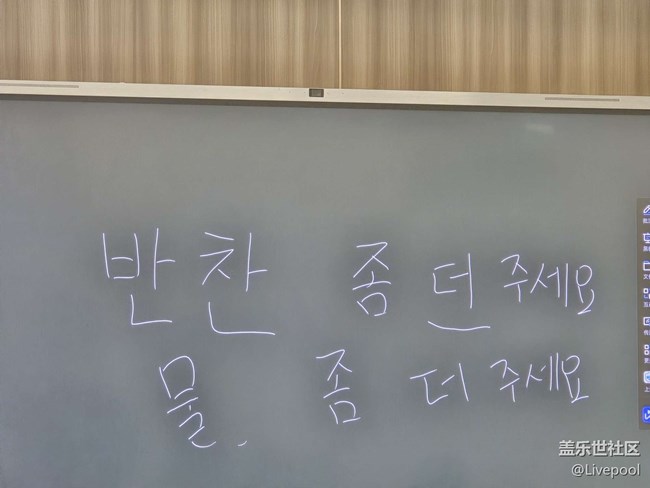 반찬 좀 더 주세요
물. 좀 더 주세요
盖乐世社区
@Livepool